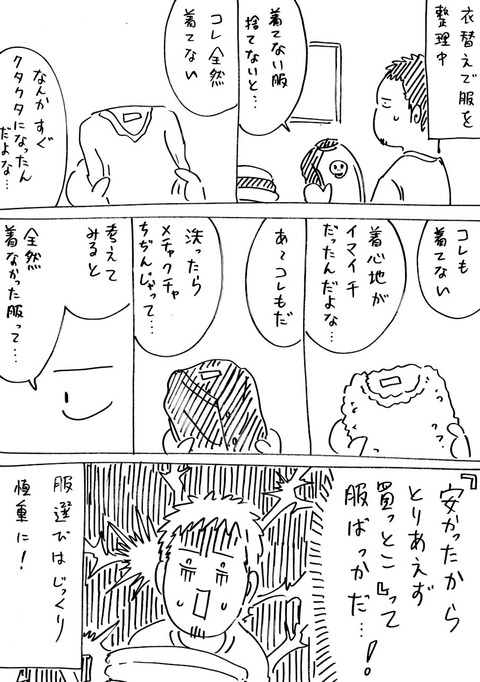 衣替えで服を
整理中
着てない服
捨てないと…
コレ全然
着てない
なんかすぐ
クタクタになったん
だよな…
コレも
着てない
着心地が
イマイチ
だったんだよな…
あ〜コレもだ
洗ったら
メチャクチャ
ちぢんじゃって…
考えて
みると
全然
着なかった服って…
『安かったから
とりあえず
買っとこ』って
服ばっかだ…!
服選びはじっくり
慎重に!